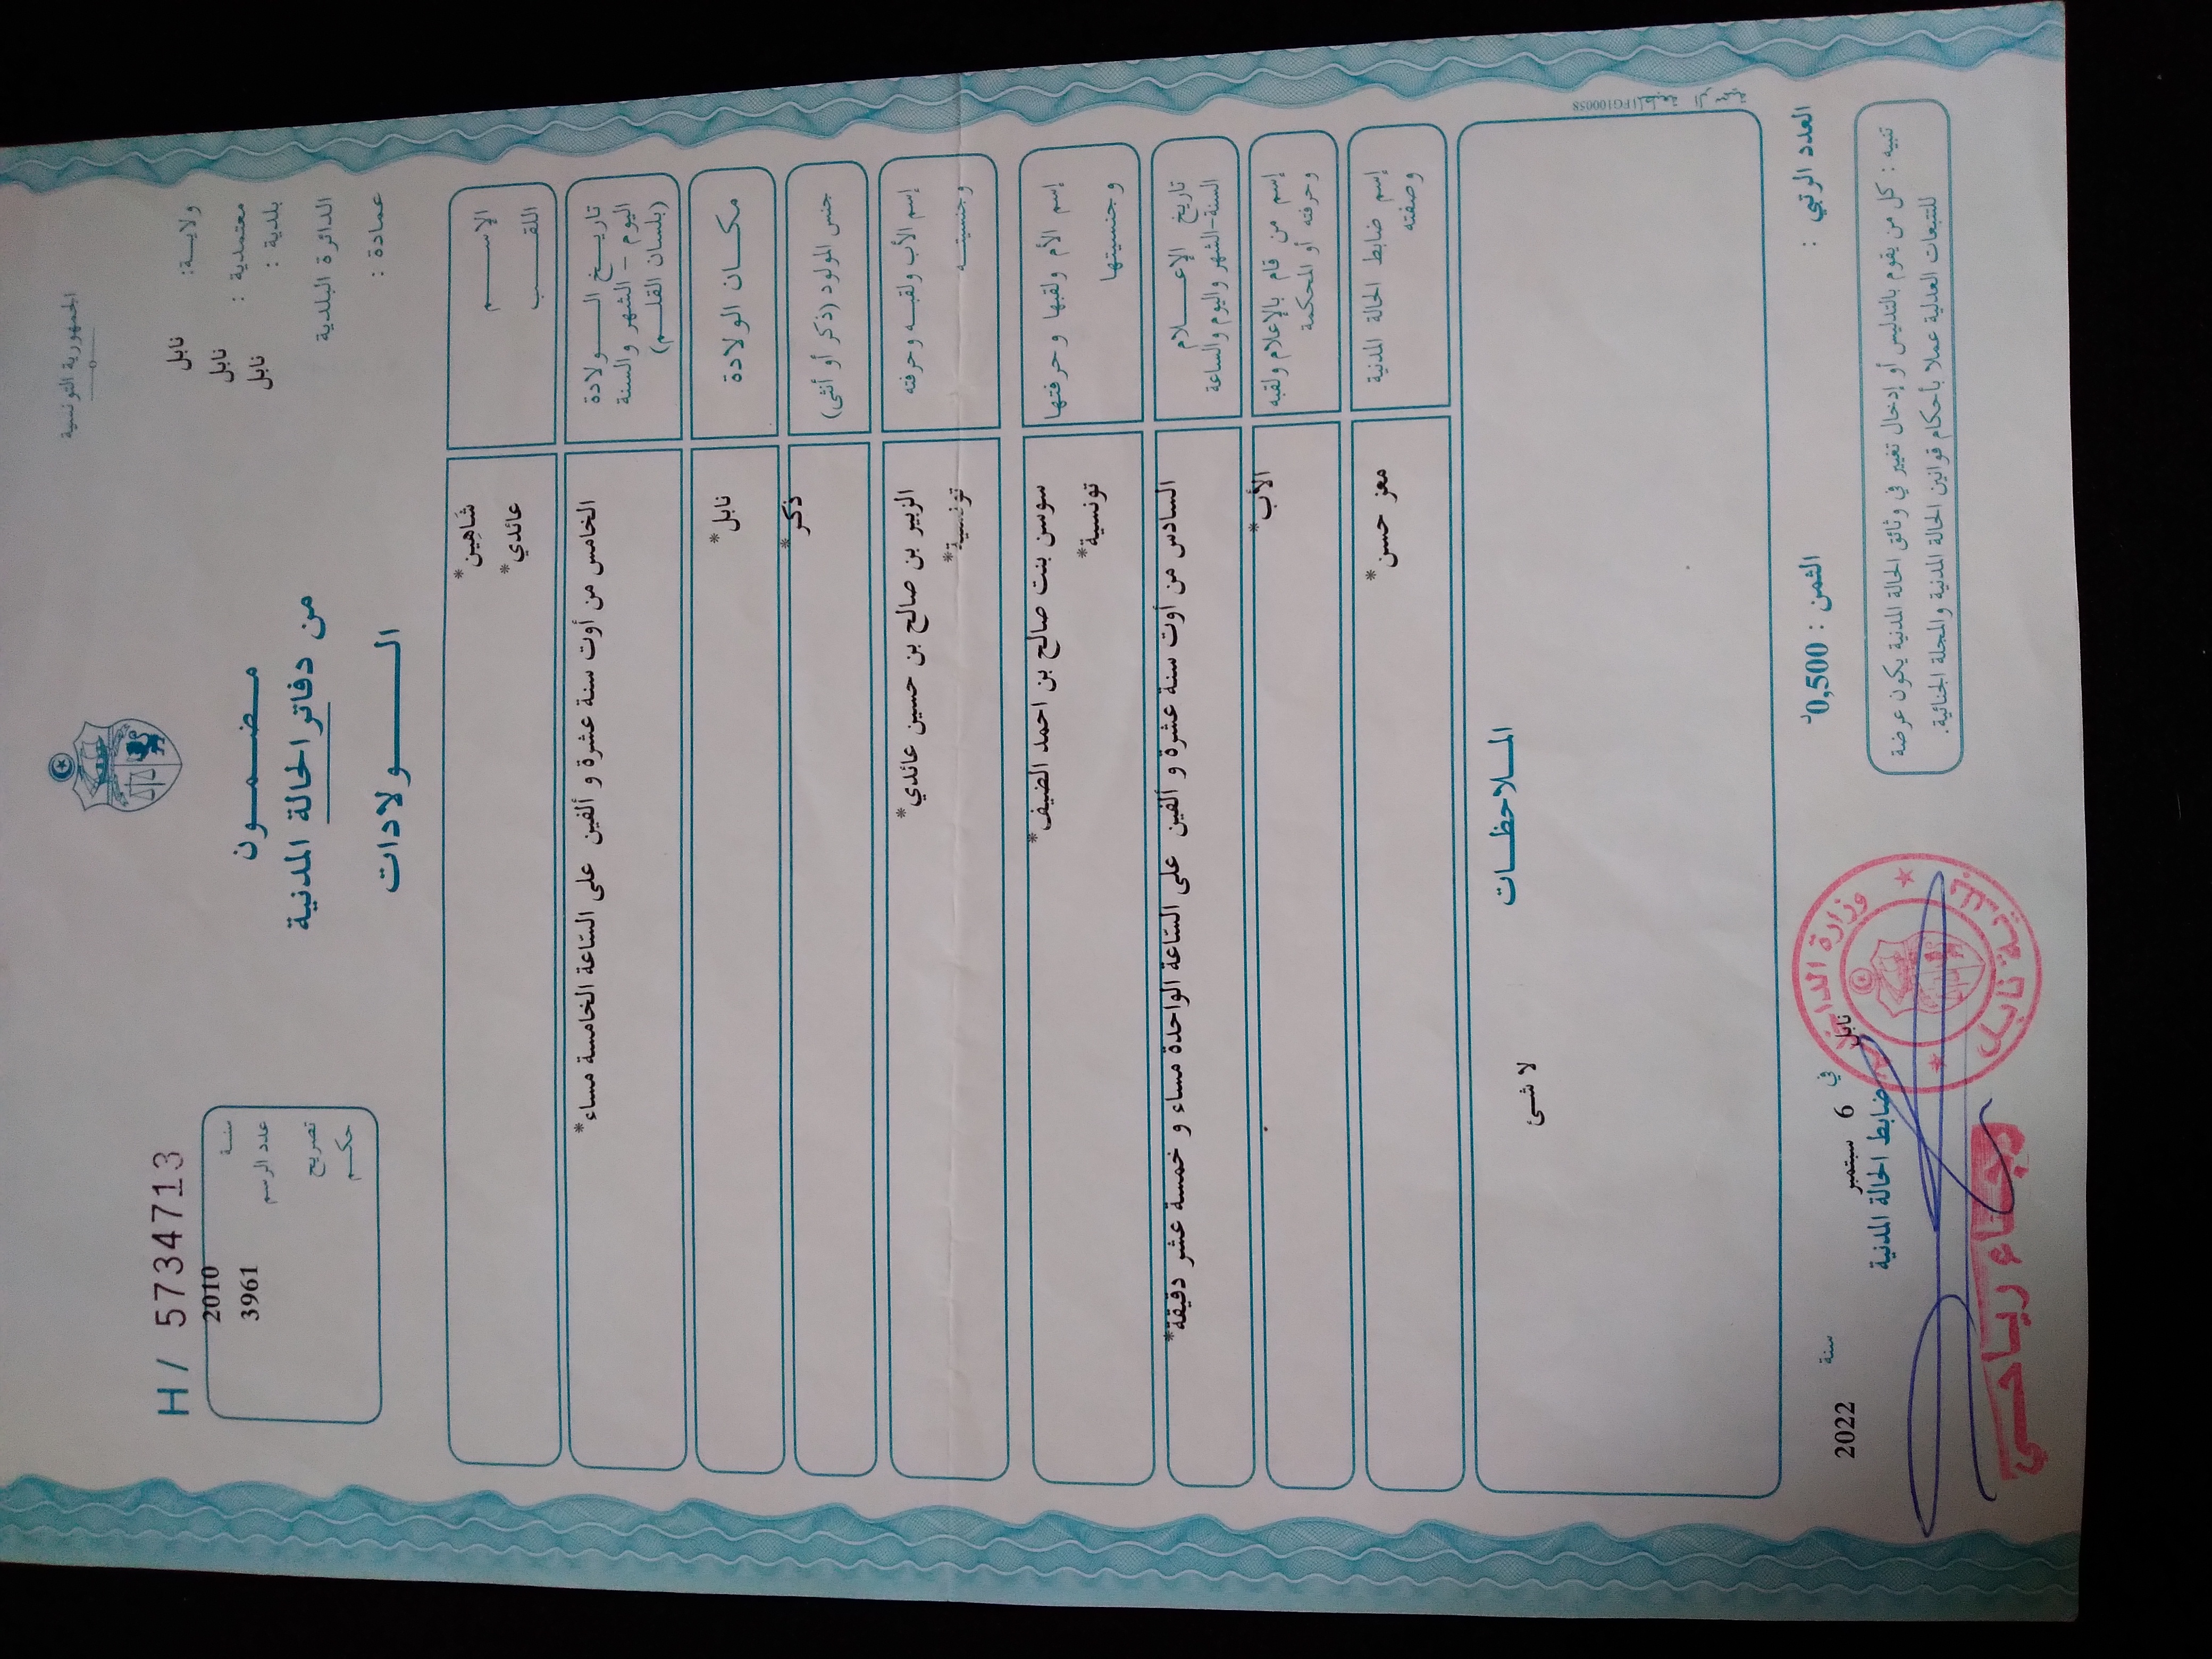 الجمهورية التونسية
ولايـة: نابل
معتمدية : نابل
بلدية : نابل
الدائرة البلدية
عمادة :
مضمـــون
من دفاتر الحالة المدنية
الـــولادات
H / 5734713
سنـة 2010
عدد الرسم 3961
تصريح
حكـم
الإســـم شَاهِين*
اللقـــب عائدي*
تاريـــخ الـــولادة
اليوم - الشهر والسنة
(بلسان القلـــم)
الخامس من أوت سنة عشرة و ألفين على السّاعة الخامسة مساء*
مكـــان الولادة نابل*
جنس المولود (ذكر أو أنثى) ذكر*
إسم الأب ولقبـه وحرفته الزبير بن صالح بن حسين عائدي*
وجنسيتـه تونسية*
إسم الأم ولقبها وحرفتها سوسن بنت صالح بن احمد الضيف*
وجنسيتها تونسية*
تاريخ الإعـــلام
السنة-الشهر واليوم والساعة
السادس من أوت سنة عشرة و ألفين على السّاعة الواحدة مساء و خمسة عشر دقيقة*
إسم من قام بالإعلام ولقبه
وحرفته أو المحكمة
الأب*
إسم ضابط الحالة المدنية
وصفته
معز حسن*
IFG100058
المـلاحظـات
لا شئ
العدد الرتبي :
الثمن : 0,500د
نابل في 6 سبتمبر سنة 2022
ضابط الحالة المدنية
تنبيه : كل من يقوم بالتدليس أو إدخال تغيير في وثائق الحالة المدنية يكون عرضة
للتتبعات العدلية عملا بأحكام قوانين الحالة المدنية والمجلة الجنائية.
وزارة الداخلية
بلدية نابل
رياحي